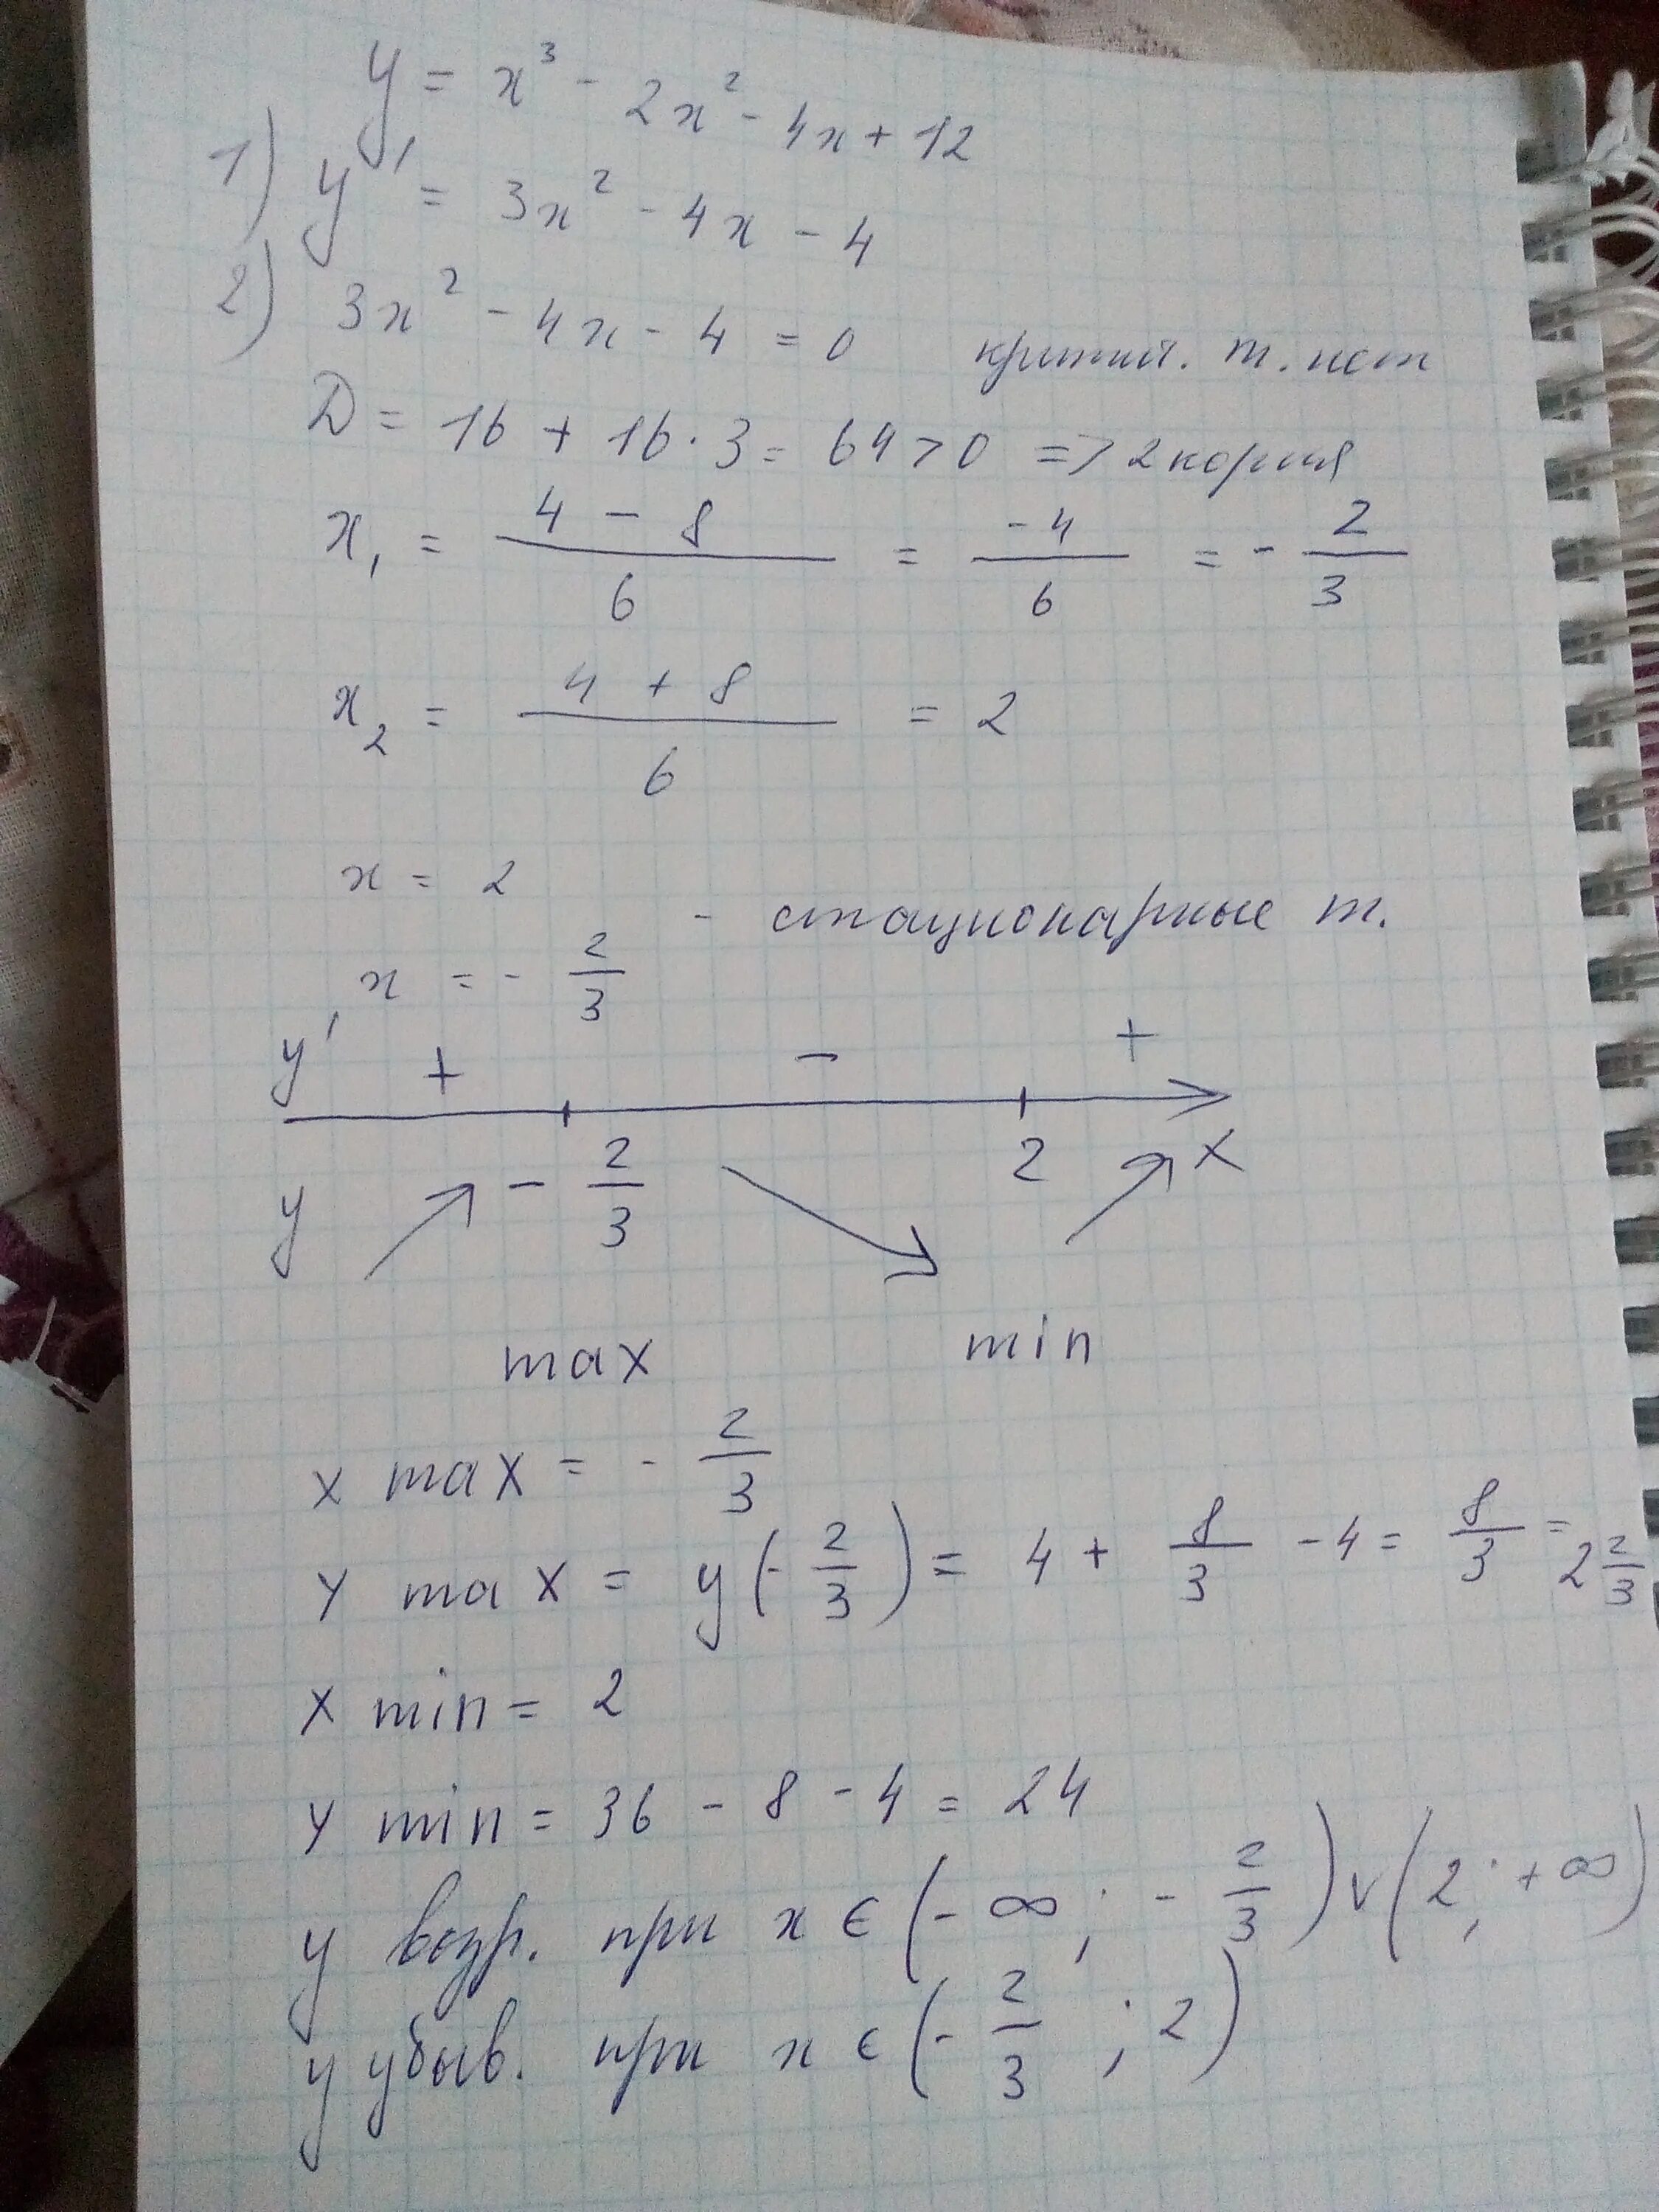 y = x³ - 2x² - 4x + 12
1) y' = 3x² - 4x - 4
2) 3x² - 4x - 4 = 0 критич. т. нет
D = 16 + 16·3 = 64 > 0 => 2 корня
x₁ = (4 - 8)/6 = -4/6 = - 2/3
x₂ = (4 + 8)/6 = 2
x = 2
- стационарные т.
x = - 2/3
y' + - +
- 2/3 2 x
y
max min
x max = - 2/3
y max = y(- 2/3) = 4 + 8/3 - 4 = 8/3 = 2 2/3
x min = 2
y min = 36 - 8 - 4 = 24
y возр. при x ∈ (- ∞ ; - 2/3) ∨ (2 ; + ∞)
y убыв. при x ∈ (- 2/3 ; 2)